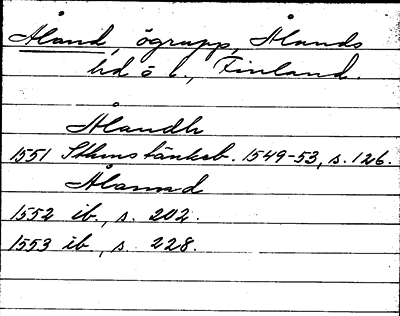 Åland, ögrupp, Ålands
hd o l., Finland.
Ålandh
1551 Sthms tänkeb. 1549-53, s. 126.
Åland
1552 ib., s. 202.
1553 ib., s. 228.